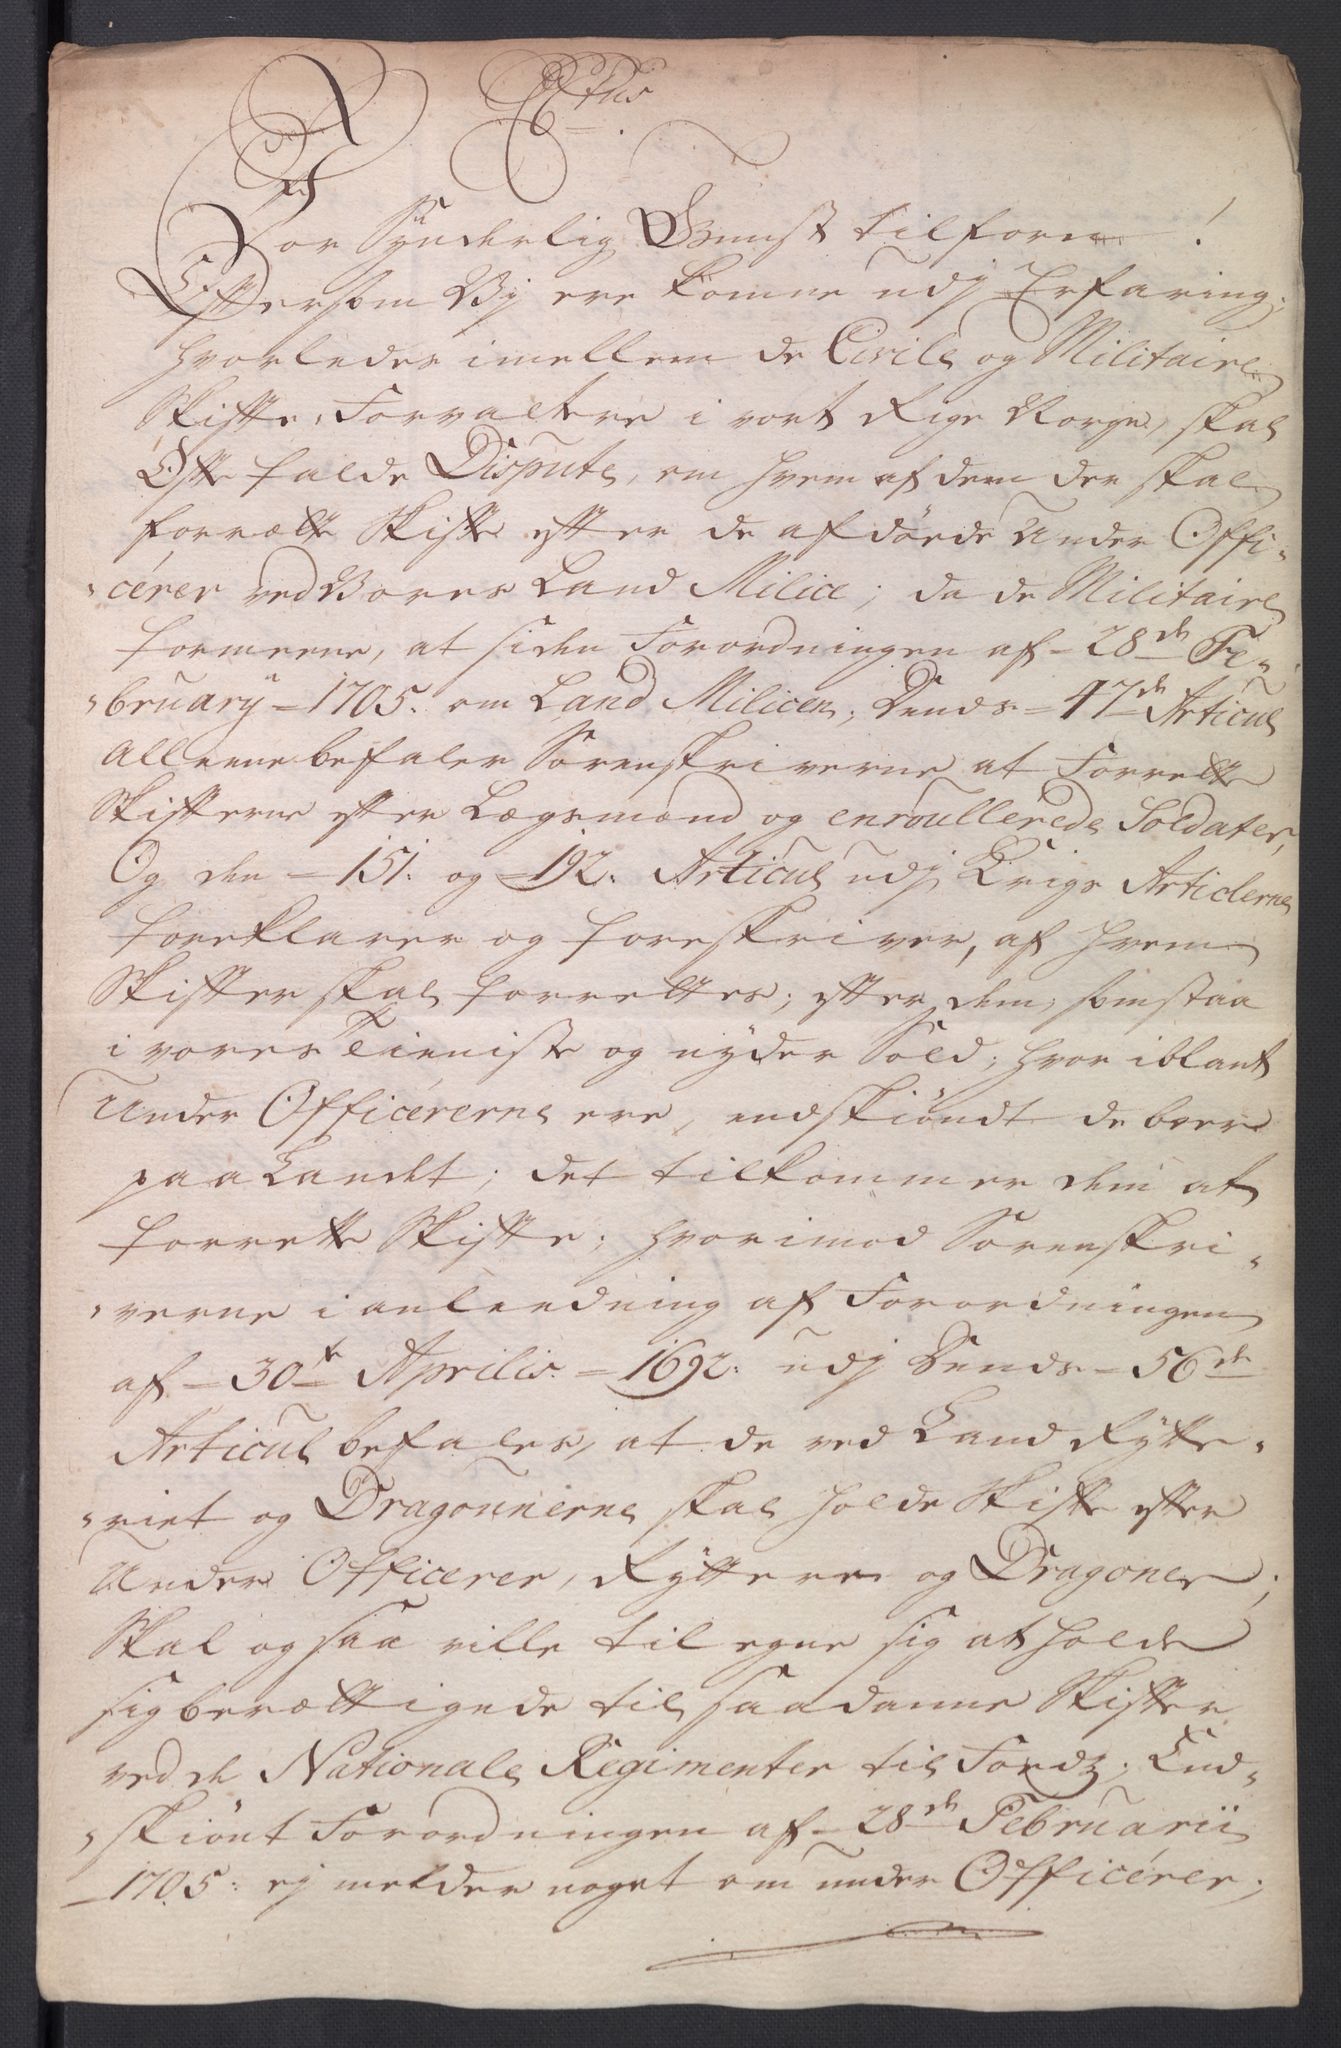 Vor Synderlig Gunst tilforn!
Eftersom Vj ere komne udj Erfaring,
hvorledes imellem de Civile og Militaire
Skifte, Forvaltere i vort Rige Norge, skal
Ofte falde Dispute, om hvem af dem der skal
forrætte Skifte efter de afdøede Under Offi-
-cérer ved Vores Land Milice; da de Militaire
formeene, at siden Forordningen af 28de Fe-
-bruarij 1705. om Land Milicen, Dends 47de Articul
Alleene befaler Sorenskriverne at Forrette
Skifterne efter Lægsmænd og enroullerede Soldater,
Og den 151. og 192. Articul udj Krigs Articlerne
foreklarer og foreskriver, af hvem
Skifter skal forrettes, efter dem, som staa
i vores Tieniste og nyder Sold, hvor iblant
Under Officérerne ere, endskiøndt de boer
paa Landet; det tilkommer dem at
forrette Skifte; hvorimod Sorenskri-
-verne i anleedning af Forordningen
af 30te Aprilis 1692. udj Dends 56de
Articul befales, at de ved Land Rytte-
-riet og Dragounerne skal holde Skifte efter
Under Officerer, Ryttere og Dragoner,
Skal og saa ville til egne sig at holde
sig berættigede til saadanne Skifter
ved de Nationale Regimenter til Fords; End-
-skiønt Forordningen af 28de Februarii
1705: ej melder noget om under Officérer;